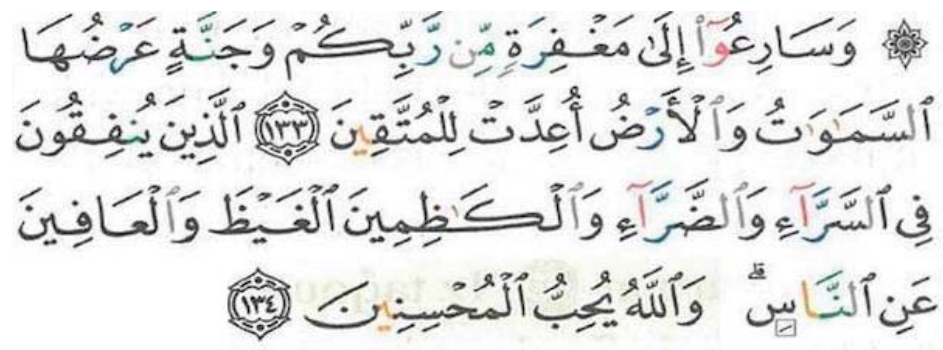 ۞ وَسَارِعُوٓا۟ إِلَىٰ مَغْفِرَةٍ مِّن رَّبِّكُمْ وَجَنَّةٍ عَرْضُهَا
ٱلسَّمَـٰوَٰتُ وَٱلْأَرْضُ أُعِدَّتْ لِلْمُتَّقِينَ ١٣٣ ٱلَّذِينَ يُنفِقُونَ
فِى ٱلسَّرَّآءِ وَٱلضَّرَّآءِ وَٱلْكَـٰظِمِينَ ٱلْغَيْظَ وَٱلْعَافِينَ
عَنِ ٱلنَّاسِ ۗ وَٱللَّهُ يُحِبُّ ٱلْمُحْسِنِينَ ١٣٤